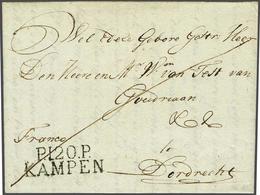 Wel Edele Gebore Gestr. Heer
Den Heere en Mr. Wm. van Test van
Goudriaan
& &
Franco
te
P.120.P.
KAMPEN
Dordrecht